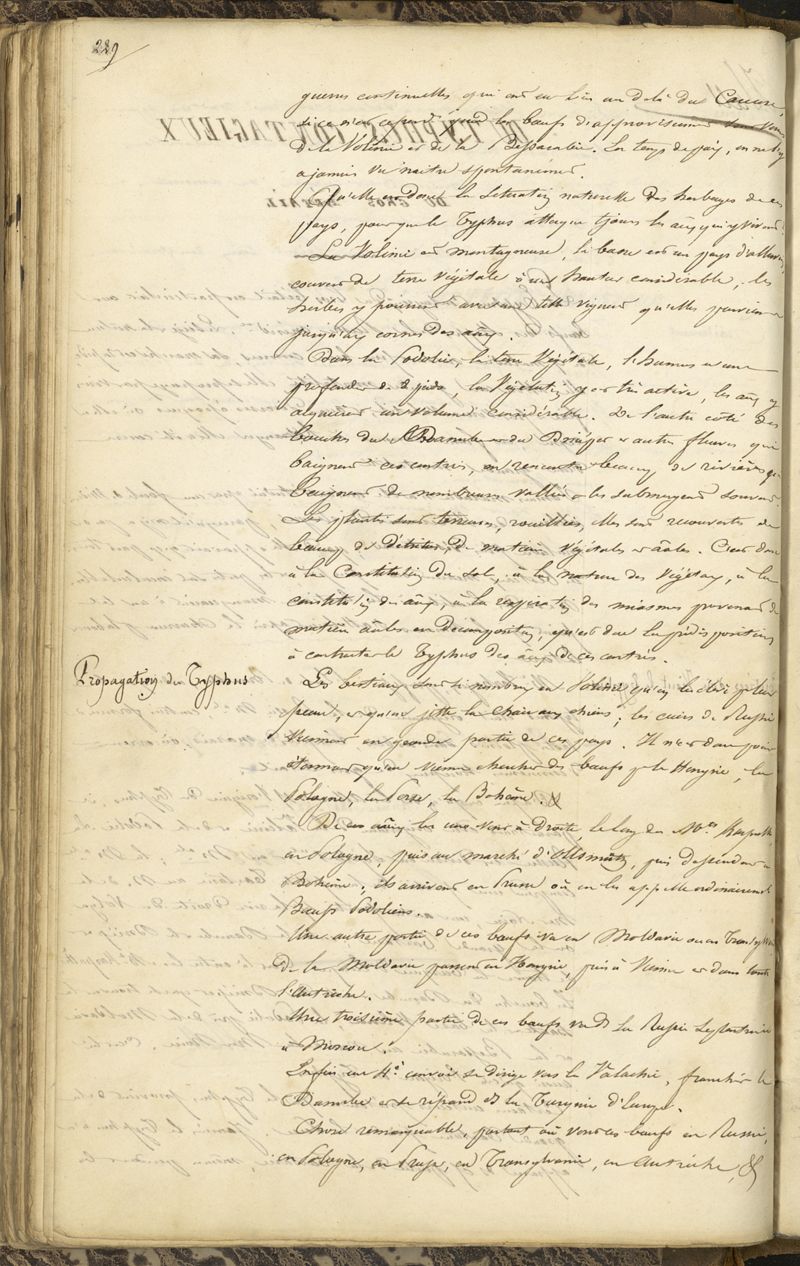 229
guerres continuelles qui ont eu lieu au delà du Caucase,
si ce n'est cependant quand les bœufs d'approvisionnemt sont venus
de la Volinie et de la Bessarabie. En temps de paix, on ne l'y
a jamais vu naître spontanément.
Quelle est donc la situation naturelle des herbages de ces
pays, pour que le Typhus attaque tjours les aux qui y vivent.
La Volinie est montagneuse, le basse est un pays d'alluvion
couvert de terre végétale à une hauteur considérable, les
herbes y poussent avec une telle vigueur qu'elles parviennent
jusqu'aux cornes des aux.
Dans la Podolie, la terre végétale, l'humus a une
profondeur de 2 pieds, la végétation y est très active, les aux y
acquièrent un volume considérable. De l'autre côté des
bouches du Danube et du Dniéper et autres fleuves qui
baignent ces contrées, on rencontre beaucp de rivières qui
baignent de nombreuses vallées et les submergent souvent.
Les plantes sont terreuses, rouillées, elles sont recouvertes de
beaucp de Détritus, de matières végétales et ales. C'est donc
à la Constitution du sol, à la nature des végétaux, à la
constitution des aux, à la des miasmes provenant de
matières ales en décomposition, qu'est due la prédisposition
à contracter le Typhus des aux de ces contrées.
Propagation du Typhus
Les bestiaux sont si nombreux en Volinie qu'on les élève pr leur
peau, et qu'on jette la chair aux chiens; les cuirs de Russie
viennent en grande partie de ces pays. Il n'est donc pas
étonnant qu'on vienne chercher des bœufs pr la Hongrie, la
Pologne, la Prusse, la Bohême.
De ces aux les uns vont à Droite, le long des Mts Karpathes
en Pologne, puis au marché d'Olsmutz, puis descendent en
Bohême; ils arrivent en Prusse où on les appelle ordinairement
Bœufs Podoliens.
Une autre partie de ces bœufs va en Moldavie ou en Transylvanie
De la Moldavie passent en Hongrie, puis à Vienne et dans toute
l'Autriche.
Une troisième partie de ces bœufs va ds la Russie Septentrionale
à Moscou.
Enfin un 4e convoi se dirige vers la Valachie, franchit le
Danube et se répand ds la Turquie d'Europe.
Chose remarquable, partout où vont ces bœufs en Russie,
en Pologne, en Prusse, en Transylvanie, en Autriche, &